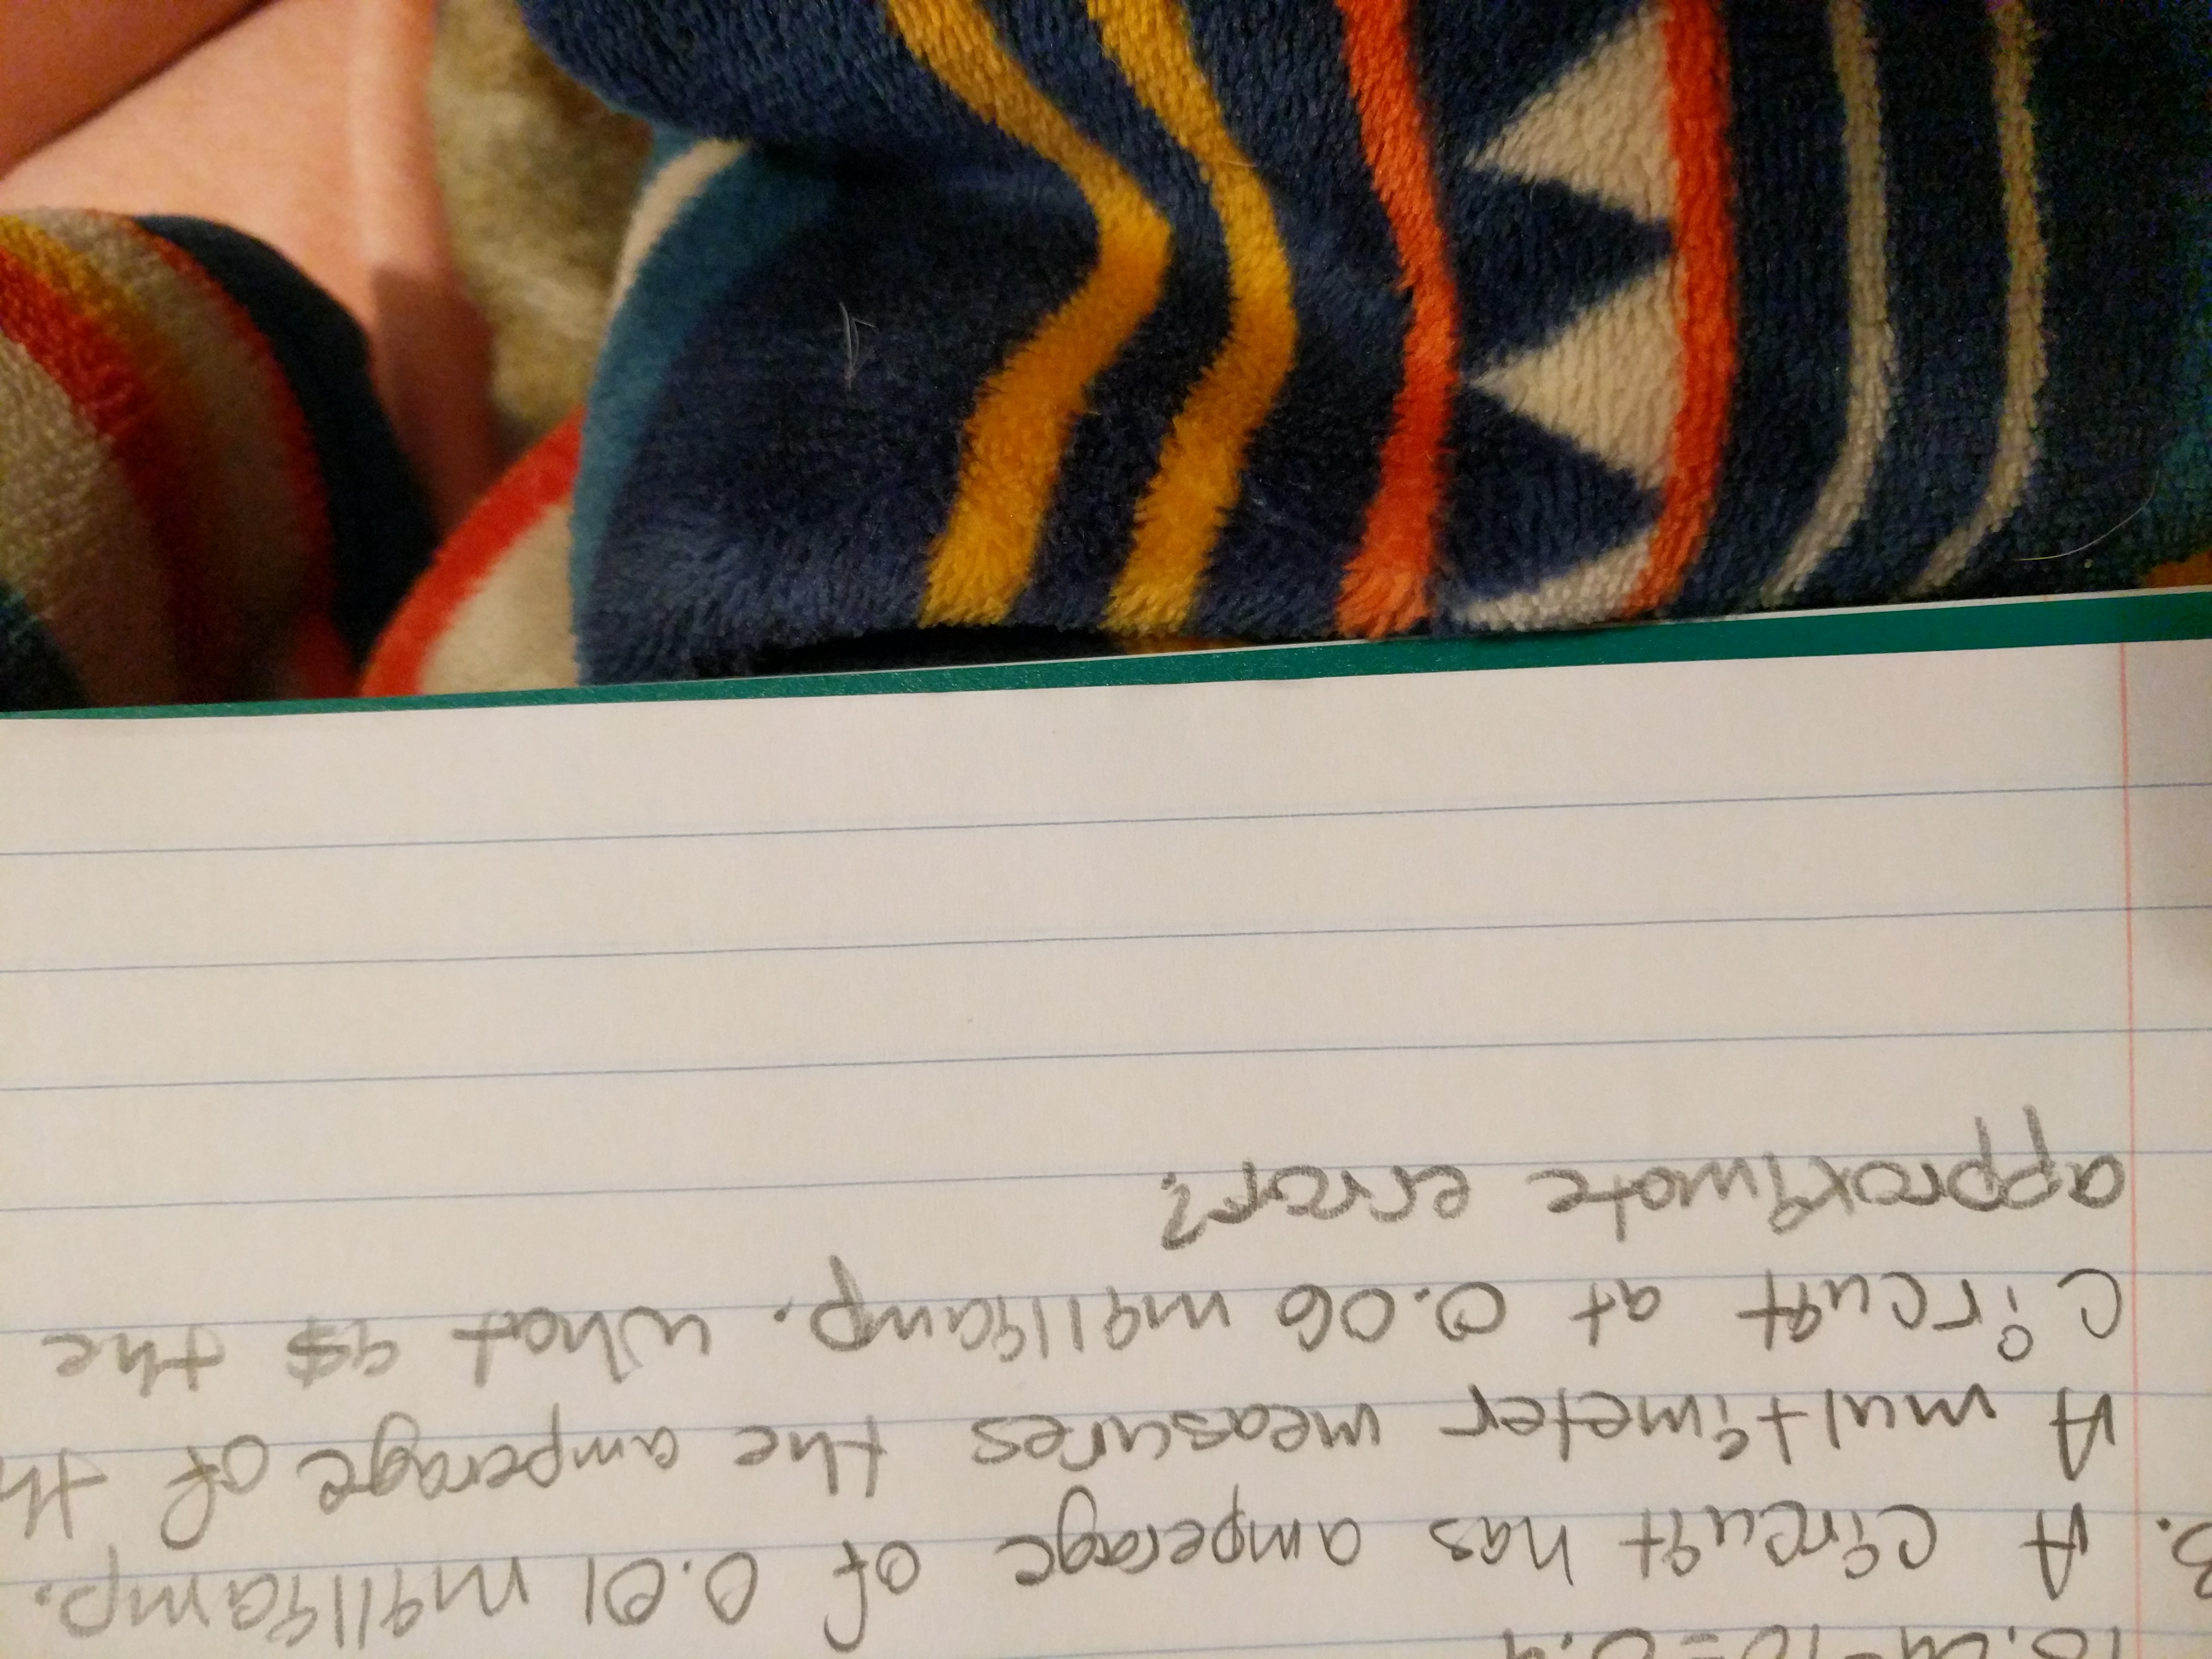 3. A circuit has amperage of 0.01 milliamp.
A multimeter measures the amperage of th
circuit at 0.06 milliamp. What is the
approximate error?